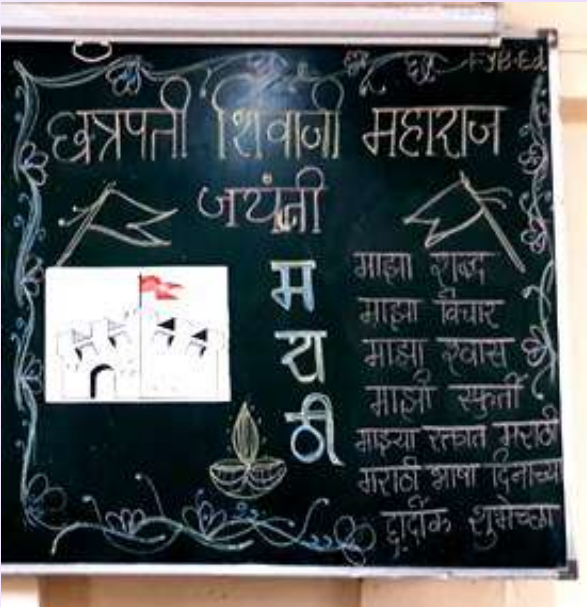 F.Y.B.Ed
छत्रपती शिवाजी महाराज
जयंती
म
रा
ठी
माझा शब्द
माझा विचार
माझा श्वास
माझी स्फुर्ती
माझ्या रक्तात मराठी
मराठी भाषा दिनाच्या
हार्दीक शुभेच्छा